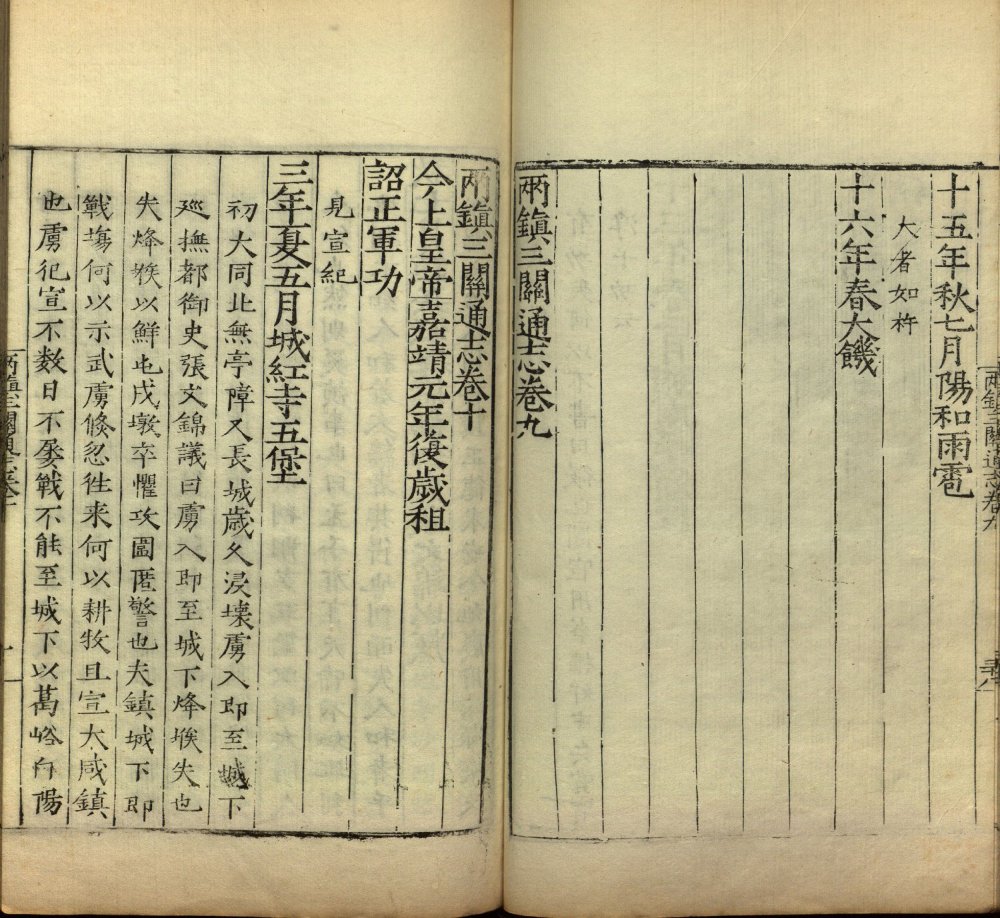 十五年秋七月陽和雨雹
大者如杵
十六年春大饑
兩鎮三關通志卷九
兩鎮三關通志卷九
兩鎮三關通志卷十
今上皇帝嘉靖元年復歲租
詔正軍功
見宣紀
三年夏五月城紅寺五堡
初大同北無亭障又長城歲久浸壞虜入即至城下
廵撫都御史張文錦議曰虜入即至城下烽堠失也
失烽堠以鮮屯戍墩卒懼攻圍匿警也夫鎮城下即
戰塲何以示武虜倐忽徃来何以耕牧且宣大咸鎮
也虜犯宣不数日不屡戰不能至城下以葛峪白陽